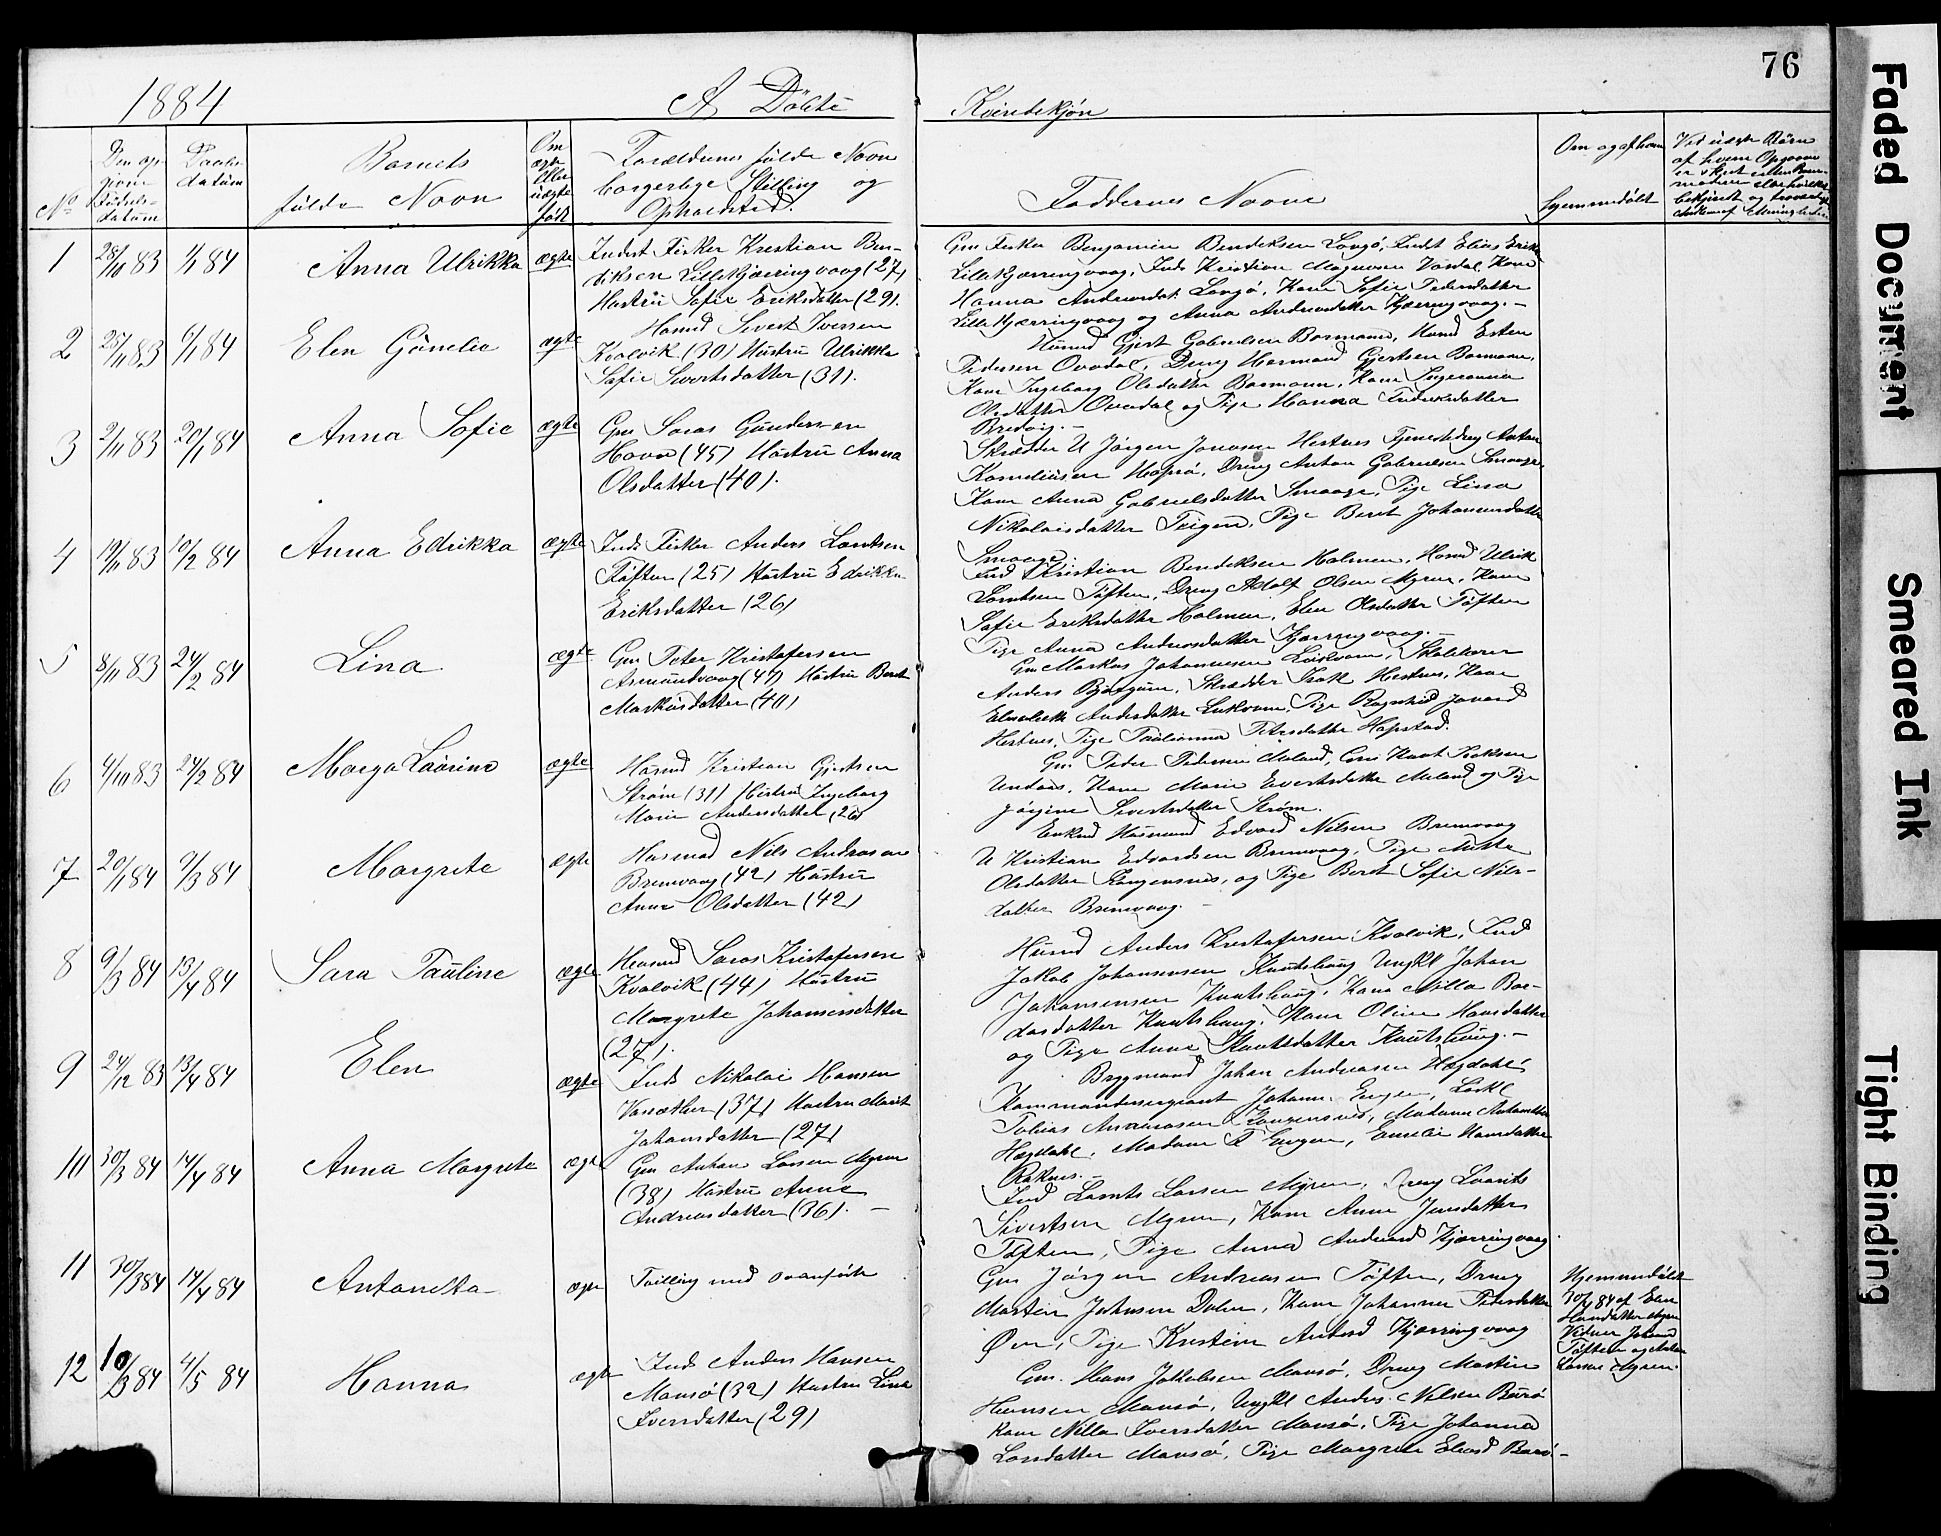 76
1884
A Döbte
Kvindekjøn
No
Den op-
givne
Födsels-
datum
Daabs-
datum
Barnets
fulde Navn
Om
ægte
eller
uægte
født
Forældrenes fulde Navn
borgerlige Stilling og
Opholdsted.
Faddernes Navne
Om og af hvem
hjemmedöbt
Ved uægte Börn
1 28/10 83 1/1 84 Anna Ulrikka ægte
Inderst Fisker Kristian Ben-
diksen Lille Kjæringvaag (27)
Hustru Sofie Eriksdatter (29).
Gm Fisker Benjamin Bendiksen Langö, Inderst Elias Erik
Lille Kjæringvaag, Inds Kristian Magnusen Vasdal, Kone
Hanna Andreasdat. Langö, Kone Sofie Pedersdatter
Lille Kjærringvaag og Anna Andreasdatter Kjæringvaag.-
2 25/11 83 6/1 84 Elen Gunelie ægte
Husmd Sivert Iversen
Kvalvik (30) Hustru Ulrikka
Sofie Sivertsdatter (31).
Husmd Gjert Gabrielsen Bosmann, Husmd Esten
Pedersen Ovedal, Dreng Hermand Gjertsen Bosmann,
Kone Ingeborg Olsdatter Bosmann, Kone Ingeranna
Olsdatter Ovedal og Pige Hanna Fredriksdatter
Bredvig.-
3 2/11 83 20/1 84 Anna Sofie ægte
Gm Saras Gundersen
Havn (45) Hustru Anna
Olsdatter (40).
Skrædder U Jörgen Jonasen Hestnes Tjenestedreng Anton
Korneliusen Hapnö, Dreng Anton Gabrielsen Smaage,
Kone Anna Gabrielsdatter Smaage, Pige Lina
Nikolaisdatter Teigen, Pige Beret Johannesdatter
Smaage.
4 19/11 83 10/2 84 Anna Edrikka ægte
Inds Fisker Anders Lorntsen
Töften (25) Hustru Edrikka
Eriksdatter (26)
Ind Kristian Bendiksen Holmen, Husmd Ulrik
Lorntsen Töften, Dreng Adolf Olsen Myren, Kone
Sofie Eriksdatter Holmen, Elen Olsdatter Töften
Pige Anna Andreasdatter Kjærringvaag.-
5 8/11 83 24/2 84 Lina ægte
Gm Peter Kristofersen
Asmundvaag (47) Hustru Beret
Markusdatter (40)
Gm Markus Johannesen Lökvam, Skoleholder
Anders Bjørgum, Skrædder Isak Hestnes, Kone
Elisabeth Andersdatter Lökvam, Pige Ragnhild
Hestnes, Pige Paulianna Petersdatter Hopstad.
6 4/10 83 24/2 84 Marga Laurine ægte
Husmd Kristian Gjertsen
Strøm (31) Hustru Ingeborg
Marie Andersdatter (26)
Gm Peder Pedersen Aaland, Gm Knut Isaksen
Undaas, Kone Marie Evertsdatter Aaland og Pige
Jörgine Sivertsdatter Strøm.
7 20/1 84 9/3 84 Margrete ægte
Husmd Nils Andreasen
Bremvaag (42) Hustru
Anne Olsdatter (42)
Enkmd Husmand Edvard Nilsen Bremvaag
U Kristian Edvardsen Bremvaag, Pige Mikka
Olsdatter Kongensnes, og Pige Beret Sofie Nils-
datter Bremvaag.-
8 9/3 84 13/4 84 Sara Pauline ægte
Husmd Saras Kristofersen
Kvalvik (44) Hustru
Margrete Johansensdatter
(27).
Husmd Anders Kristofersen Kvalvik, Ind
Jakob Johansensen Knutshaug Ungkl Johan
Johansensen Knutshaug, Kone Nilla Bar-
dosdatter Knutshaug, Kone Oline Hansdatter
og Pige Anne Knutsdatter Knutshaug.-
9 24/12 83 13/4 84 Elen ægte
Inds Nikolai Hansen
(37) Hustru Marit
Johansdatter (27)
Brygmand Johan Andreasen Hægdahl
Kommandersergeant Johann Engen,
Tobias Andreasen Kongensnes, Madame
Hægdahl, Madame Engen, Emelie Hansdatter
10 30/3 84 14/4 84 Anna Margrete ægte
Gm Johan Larsen Myren
(38) Hustru Anne
Andreasdatter (36).-
Ind Lornts Larsen Myren, Dreng Lorents
Sivertsen Myren, Kone Anne Jensdatter
Töften, Pige Anna Andreasd Kjærringvaag
11 30/3 84 14/4 84 Antonetta ægte
Tvilling med ovanförte
Gm Jörgen Andreasen Töften, Dreng
Martin Johnsen Dalen, Kone Johanna Pedersdatter
Øen, Pige Kristine Antonsd Kjærringvaag
Hjemmedöbt
30/3 84 af Elen
Hansdatter Myren
Vidner Johan
Töften og Anton
Larsen Myren.
12 10/3 84 4/5 84 Hanna ægte
Inds Anders Hansen
Mausö (32) Hustru Lina
Iversdatter (29)
Gm. Hans Jakobsen Mausö, Dreng Martin
Hansen Mausö, Ungkl Anders Nilsen Burö
Kone Nilla Iversdatter Mausö, Pige Johanna
Larsdatter Mausö, Pige Margrete Elnsd Burö.-
Faded Document
Smeared Ink
Tight Binding